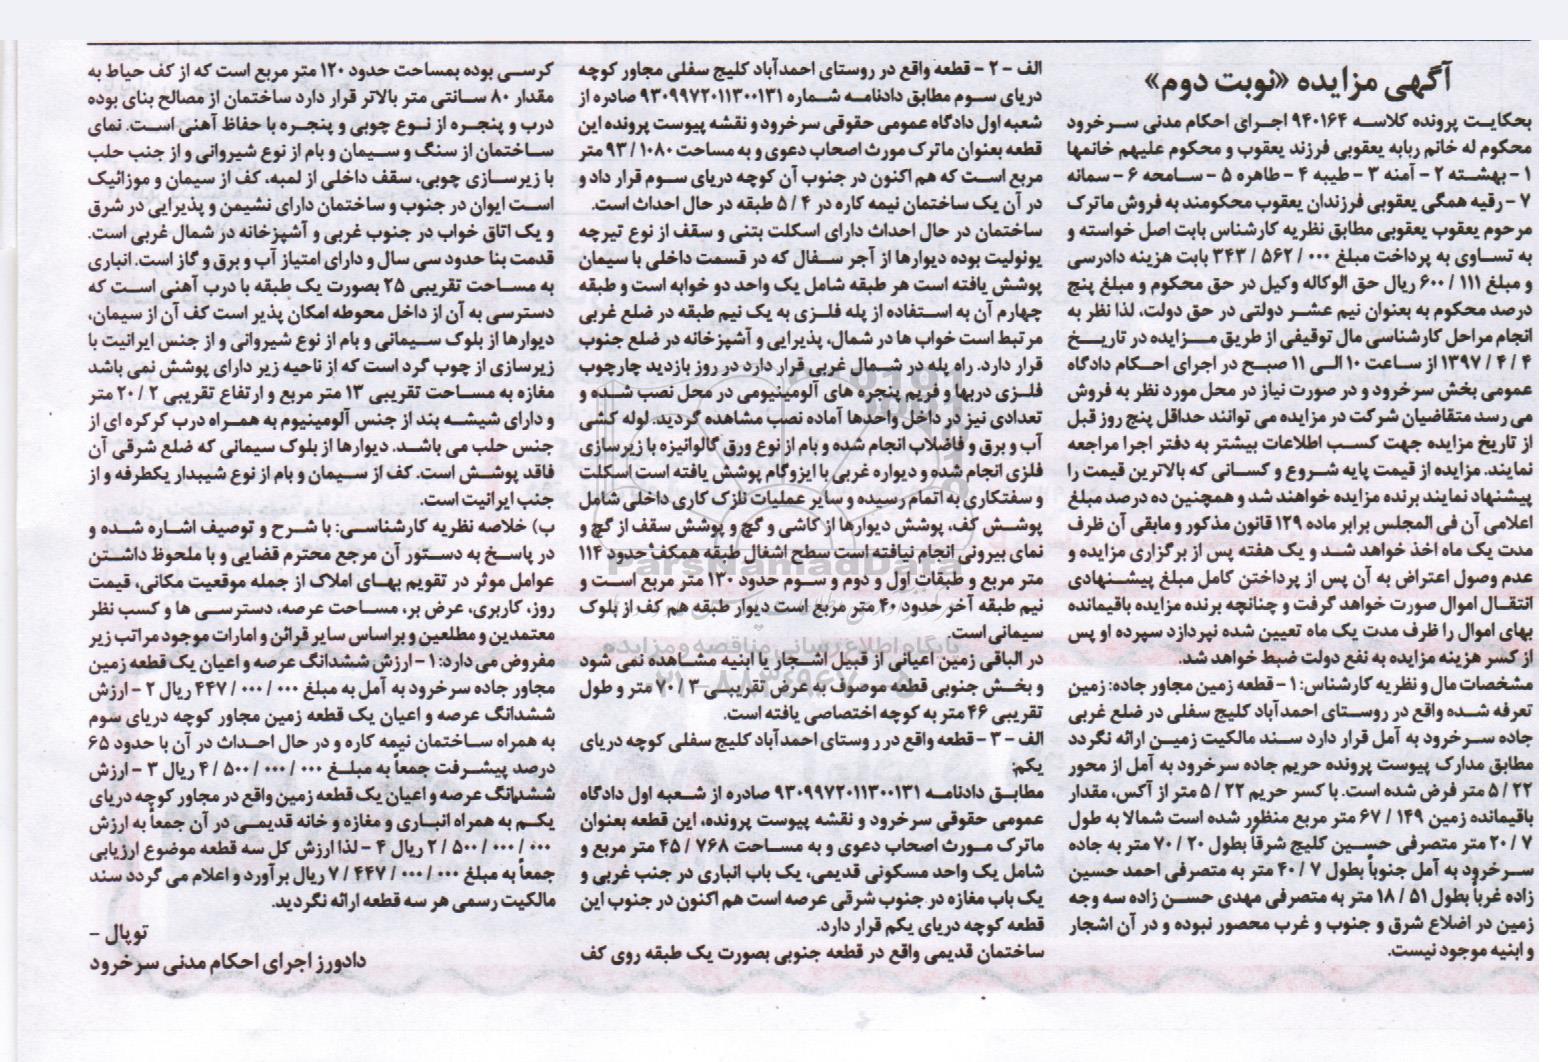 آگهی مزایده «نوبت دوم»
بحکایت پرونده کلاسه ۹۴۰۱۶۴ اجرای احکام مدنی سرخرود
محکوم له خانم ربابه یعقوبی فرزند یعقوب و محکوم علیهم خانمها
۱- بهشته ۲- آمنه ۳- طیبه ۴- طاهره ۵- سامحه ۶- سمانه
۷- رقیه همگی یعقوبی فرزندان یعقوب محکومند به فروش ماترک
مرحوم یعقوب یعقوبی مطابق نظریه کارشناس بابت اصل خواسته و
به تساوی به پرداخت مبلغ ۰۰۰ / ۵۶۲ / ۳۴۳ بابت هزینه دادرسی
و مبلغ ۱۱۱ / ۶۰۰ ریال حق الوکاله وکیل در حق محکوم و مبلغ پنج
درصد محکوم به بعنوان نیم عشر دولتی در حق دولت، لذا نظر به
انجام مراحل کارشناسی مال توقیفی از طریق مزایده در تاریخ
۴ / ۴ / ۱۳۹۷ از ساعت ۱۰ الی ۱۱ صبح در اجرای احکام دادگاه
عمومی بخش سرخرود و در صورت نیاز در محل مورد نظر به فروش
می رسد متقاضیان شرکت در مزایده می توانند حداقل پنج روز قبل
از تاریخ مزایده جهت کسب اطلاعات بیشتر به دفتر اجرا مراجعه
نمایند. مزایده از قیمت پایه شروع و کسانی که بالاترین قیمت را
پیشنهاد نمایند برنده مزایده خواهند شد و همچنین ده درصد مبلغ
اعلامی آن فی المجلس برابر ماده ۱۲۹ قانون مذکور و مابقی آن ظرف
مدت یک ماه اخذ خواهد شد و یک هفته پس از برگزاری مزایده و
عدم وصول اعتراض به آن پس از پرداختن کامل مبلغ پیشنهادی
انتقال اموال صورت خواهد گرفت و چنانچه برنده مزایده باقیمانده
بهای اموال را ظرف مدت یک ماه تعیین شده نپردازد سپرده او پس
از کسر هزینه مزایده به نفع دولت ضبط خواهد شد.
مشخصات مال و نظریه کارشناس: ۱- قطعه زمین مجاور جاده: زمین
تعرفه شده واقع در روستای احمدآباد کلیج سفلی در ضلع غربی
جاده سرخرود به آمل قرار دارد سند مالکیت زمین ارائه نگردد
مطابق مدارک پیوست پرونده حریم جاده سرخرود به آمل از محور
۲۲ / ۵ متر فرض شده است. با کسر حریم ۲۲ / ۵ متر از آکس، مقدار
باقیمانده زمین ۱۴۹ / ۶۷ متر مربع منظور شده است شمالا به طول
۷ / ۲۰ متر متصرفی حسین کلیج شرقاً بطول ۲۰ / ۷۰ متر به جاده
سرخرود به آمل جنوباً بطول ۷ / ۴۰ متر به متصرفی احمد حسین
زاده غرباً بطول ۵۱ / ۱۸ متر به متصرفی مهدی حسن زاده سه وجه
زمین در اضلاع شرق و جنوب و غرب محصور نبوده و در آن اشجار
و ابنیه موجود نیست.
الف - ۲- قطعه واقع در روستای احمدآباد کلیج سفلی مجاور کوچه
دریای سوم مطابق دادنامه شماره ۹۳۰۹۹۷۲۰۱۱۳۰۰۱۳۱ صادره از
شعبه اول دادگاه عمومی حقوقی سرخرود و نقشه پیوست پرونده این
قطعه بعنوان ماترک مورث اصحاب دعوی و به مساحت ۱۰۸۰ / ۹۳ متر
مربع است که هم اکنون در جنوب آن کوچه دریای سوم قرار داد و
در آن یک ساختمان نیمه کاره در ۴ / ۵ طبقه در حال احداث است.
ساختمان در حال احداث دارای اسکلت بتنی و سقف از نوع تیرچه
یونولیت بوده دیوارها از آجر سفال که در قسمت داخلی با سیمان
پوشش یافته است هر طبقه شامل یک واحد دو خوابه است و طبقه
چهارم آن به استفاده از پله فلزی به یک نیم طبقه در ضلع غربی
مرتبط است خواب ها در شمال، پذیرایی و آشپزخانه در ضلع جنوب
قرار دارد. راه پله در شمال غربی قرار دارد در روز بازدید چارچوب
فلزی دربها و فریم پنجره های آلومینیومی در محل نصب شده و
تعدادی نیز در داخل واحدها آماده نصب مشاهده گردید. لوله کشی
آب و برق و فاضلاب انجام شده و بام از نوع ورق گالوانیزه با زیرسازی
فلزی انجام شده و دیواره غربی با ایزوگام پوشش یافته است اسکلت
و سفتکاری به اتمام رسیده و سایر عملیات نازک کاری داخلی شامل
پوشش کف، پوشش دیوارها از کاشی و گچ و پوشش سقف از گچ و
نمای بیرونی انجام نیافته است سطح اشغال طبقه همکف حدود ۱۱۴
متر مربع و طبقات اول و دوم و سوم حدود ۱۳۰ متر مربع است و
نیم طبقه آخر حدود ۴۰ متر مربع است دیوار طبقه هم کف از بلوک
سیمانی است.
در الباقی زمین اعیانی از قبیل اشجار یا ابنیه مشاهده نمی شود
و بخش جنوبی قطعه موصوف به عرض تقریبی ۳ / ۷۰ متر و طول
تقریبی ۴۶ متر به کوچه اختصاصی یافته است.
الف - ۳- قطعه واقع در روستای احمدآباد کلیج سفلی کوچه دریای
یکم:
مطابق دادنامه ۹۳۰۹۹۷۲۰۱۱۳۰۰۱۳۱ صادره از شعبه اول دادگاه
عمومی حقوقی سرخرود و نقشه پیوست پرونده، این قطعه بعنوان
ماترک مورث اصحاب دعوی و به مساحت ۷۶۸ / ۴۵ متر مربع و
شامل یک واحد مسکونی قدیمی، یک باب انباری در جنب غربی و
یک باب مغازه در جنوب شرقی عرصه است هم اکنون در جنوب این
قطعه کوچه دریای یکم قرار دارد.
ساختمان قدیمی واقع در قطعه جنوبی بصورت یک طبقه روی کف
کرسی بوده بمساحت حدود ۱۲۰ متر مربع است که از کف حیاط به
مقدار ۸۰ سانتی متر بالاتر قرار دارد ساختمان از مصالح بنای بوده
درب و پنجره از نوع چوبی و پنجره با حفاظ آهنی است. نمای
ساختمان از سنگ و سیمان و بام از نوع شیروانی و از جنب حلب
با زیرسازی چوبی، سقف داخلی از لمبه، کف از سیمان و موزائیک
است ایوان در جنوب و ساختمان دارای نشیمن و پذیرایی در شرق
و یک اتاق خواب در جنوب غربی و آشپزخانه در شمال غربی است.
قدمت بنا حدود سی سال و دارای امتیاز آب و برق و گاز است. انباری
به مساحت تقریبی ۲۵ بصورت یک طبقه با درب آهنی است که
دسترسی به آن از داخل محوطه امکان پذیر است کف آن از سیمان،
دیوارها از بلوک سیمانی و بام از نوع شیروانی و از جنس ایرانیت با
زیرسازی از چوب گرد است که از ناحیه زیر دارای پوشش نمی باشد
مغازه به مساحت تقریبی ۱۳ متر مربع و ارتفاع تقریبی ۲ / ۲۰ متر
و دارای شیشه بند از جنس آلومینیوم به همراه درب کرکره ای از
جنس حلب می باشد. دیوارها از بلوک سیمانی که ضلع شرقی آن
فاقد پوشش است. کف از سیمان و بام از نوع شیبدار یکطرفه و از
جنب ایرانیت است.
ب) خلاصه نظریه کارشناسی: با شرح و توصیف اشاره شده و
در پاسخ به دستور آن مرجع محترم قضایی و با ملحوظ داشتن
عوامل موثر در تقویم بهای املاک از جمله موقعیت مکانی، قیمت
روز، کاربری، عرض بر، مساحت عرصه، دسترسی ها و کسب نظر
معتمدین و مطلعین و براساس سایر قرائن و امارات موجود مراتب زیر
مفروض می دارد: ۱- ارزش ششدانگ عرصه و اعیان یک قطعه زمین
مجاور جاده سرخرود به آمل به مبلغ ۰۰۰ / ۰۰۰ / ۴۴۷ ریال ۲- ارزش
ششدانگ عرصه و اعیان یک قطعه زمین مجاور کوچه دریای سوم
به همراه ساختمان نیمه کاره و در حال احداث در آن با حدود ۶۵
درصد پیشرفت جمعاً به مبلغ ۰۰۰ / ۰۰۰ / ۵۰۰ / ۴ ریال ۳- ارزش
ششدانگ عرصه و اعیان یک قطعه زمین واقع در مجاور کوچه دریای
یکم به همراه انباری و مغازه و خانه قدیمی در آن جمعاً به ارزش
۰۰۰ / ۰۰۰ / ۵۰۰ / ۲ ریال ۴- لذا ارزش کل سه قطعه موضوع ارزیابی
جمعاً به مبلغ ۰۰۰ / ۰۰۰ / ۴۴۷ / ۷ ریال برآورد و اعلام می گردد سند
مالکیت رسمی هر سه قطعه ارائه نگردید.
توپال -
دادورز اجرای احکام مدنی سرخرود
ParsNamadData
پایگاه اطلاع رسانی مناقصه و مزایده